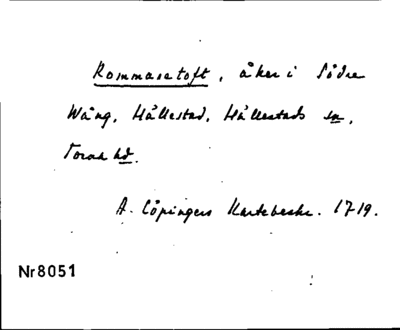 Rommaretoft, åker i Södre
Wång, Hällestad, Hällestads sn,
Torna hd.
A. Cöpingers Kartebeskr. 1719.
Nr8051